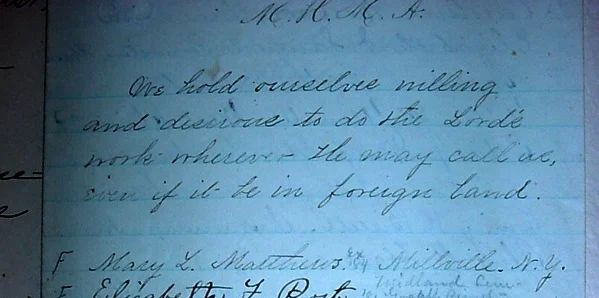 M. H. M. A.
We hold ourselves willing
and desirous to do the Lord's
work wherever He may call us,
even if it be in foreign land.
F Mary L. Matthews. Millville. N.Y.
Midland
F Elizabeth F.